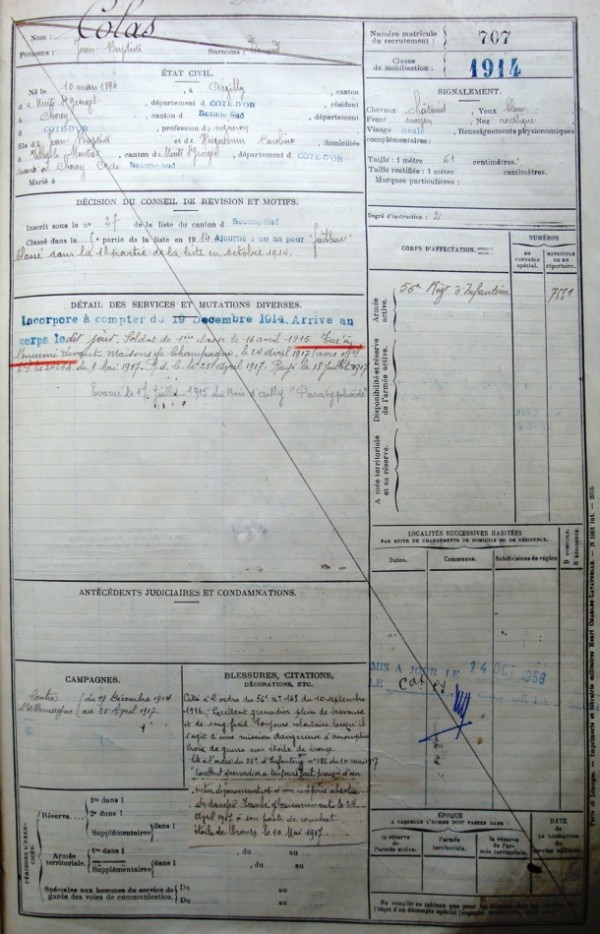 Nom : Colas
Prénoms : Jean Baptiste Surnoms :
Numéro matricule du recrutement : 707
Classe de mobilisation : 1914
ÉTAT CIVIL.
Né le 10 mars 1894, à Argilly, canton
de Nuits St Georges, département d CÔTE-D'OR, résidant
à Chorey Beaune Sud département
d CÔTE-D'OR, profession de
fils de Jean Baptiste et de Huguenin Caroline, domiciliés
à canton de Nuits St Georges, département d CÔTE-D'OR
à Chorey Beaune Sud
Marié à
DÉCISION DU CONSEIL DE REVISION ET MOTIFS.
Inscrit sous le no 27 de la liste du canton d Beaune Sud
Classé dans la partie de la liste en 1914 Ajourné à un an pour "faiblesse"
Classé dans la 1e partie de la liste en octobre 1914.
DÉTAIL DES SERVICES ET MUTATIONS DIVERSES.
Incorporé à compter du 19 Décembre 1914. Arrivé au
corps le dit jour. Soldat de 1ère classe le 16 avril 1916. Tué à
l'ennemi devant Maisons de Champagne, le 24 avril 1917 (avis off.
du 9 Mai 1917. le 25 avril 1917. Rayé le 18 juillet 1917
Évacué le 17 Juillet 1915 du Bois d'Ailly "Paratyphoïde"
ANTÉCÉDENTS JUDICIAIRES ET CONDAMNATIONS.
CAMPAGNES.
Contre (du 19 Décembre 1914
l'Allemagne (au 25 Avril 1917
BLESSURES, CITATIONS,
DÉCORATIONS, ETC.
Cité à l'ordre du 56e no 169 du 10 septembre
1916. Excellent grenadier plein de bravoure
et de sang froid. Toujours volontaire lorsqu'il
s'agit d'une mission dangereuse à accomplir
Croix de guerre avec étoile de bronze.
Cité à l'ordre du 56e d'Infanterie no 186 du 10 mai 1917
Excellent grenadier a toujours fait preuve d'un
entier dévouement et d'un mépris absolu
du danger. Tombé glorieusement le 24
Avril 1917 à son poste de combat
étoile de bronze le 10 Mai 1917.
PÉRIODES D'EXERCICES.
Réserve
1re dans l
2e dans l
Supplémentaires dans l
Armée territoriale.
1re dans l
Supplémentaires dans l
, du au
, du au
Spéciales aux hommes du service de
garde des voies de communication.
Du au
Du au
SIGNALEMENT.
Cheveux châtains Yeux bleus
Front moyen Nez rectiligne
Visage ovale Renseignements physionomiques
complémentaires :
Taille : 1 mètre 61 centimètres.
Taille rectifiée : 1 mètre centimètres.
Marques particulières :
Degré d'instruction : 2
CORPS D'AFFECTATION.
NUMÉROS
AU CONTRÔLE SPÉCIAL.
MATRICULE OU AU RÉPERTOIRE.
Armée active.
56e Régt d'Infanterie
Disponibilité et réserve de l'armée active.
Armée territoriale et sa réserve.
LOCALITÉS SUCCESSIVES HABITÉES
PAR SUITE DE CHANGEMENTS DE DOMICILE OU DE RÉSIDENCE.
Dates. Communes. Subdivisions de région.
D DOMICILE. R RÉSIDENCE.
MIS A JOUR LE 14 OCT 1968
ÉPOQUE
A LAQUELLE L'HOMME DOIT PASSER DANS :
la réserve de l'armée active.
l'armée territoriale.
la réserve de l'armée territoriale.
DATE DE LA LIBÉRATION DU SERVICE MILITAIRE.
Paris et Limoges. — Imprimerie et librairie militaires Henri CHARLES-LAVAUZELLE.